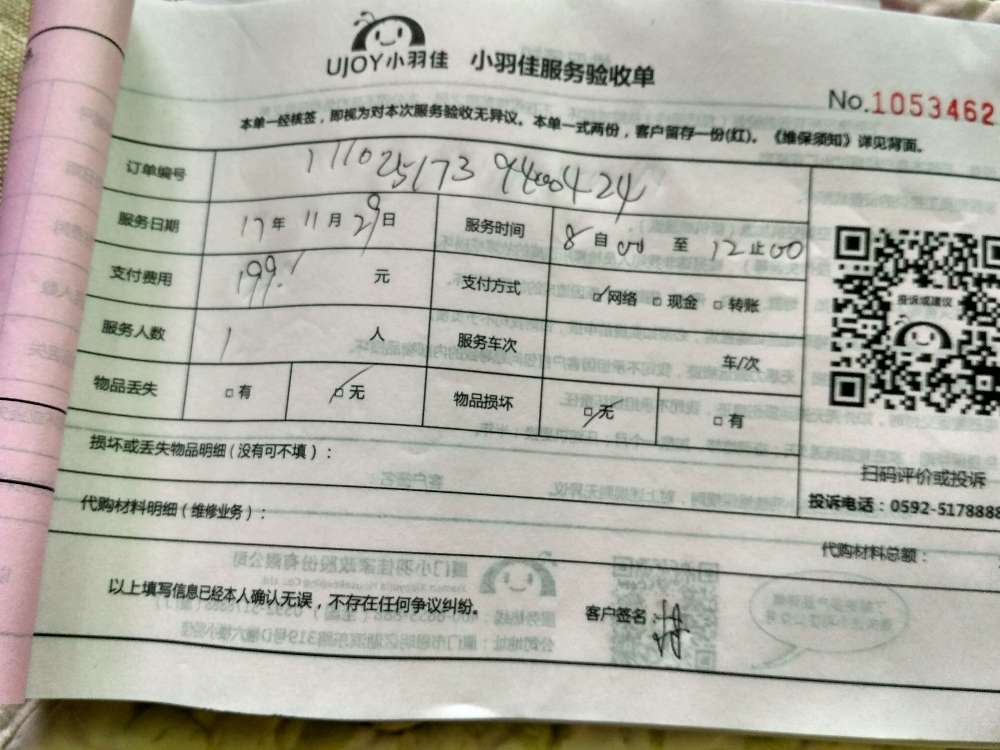 UJOY小羽佳 小羽佳服务验收单
No.1053462
本单一经核签，即视为对本次服务验收无异议。本单一式两份，客户留存一份(红)。《维保须知》详见背面。
订单编号 1110251739400424
服务日期 17年 11月 29日 服务时间 8自00 至 12止00
支付费用 199. 元 支付方式 ☑网络 □现金 □转账
服务人数 1 人 服务车次 车/次
物品丢失 □有 ☑无 物品损坏 ☑无 □有
投诉或建议
损坏或丢失物品明细（没有可不填）：
扫码评价或投诉
投诉电话：0592-5178888
代购材料明细（维修业务）：
代购材料总额：
以上填写信息已经本人确认无误，不存在任何争议纠纷。 客户签名：